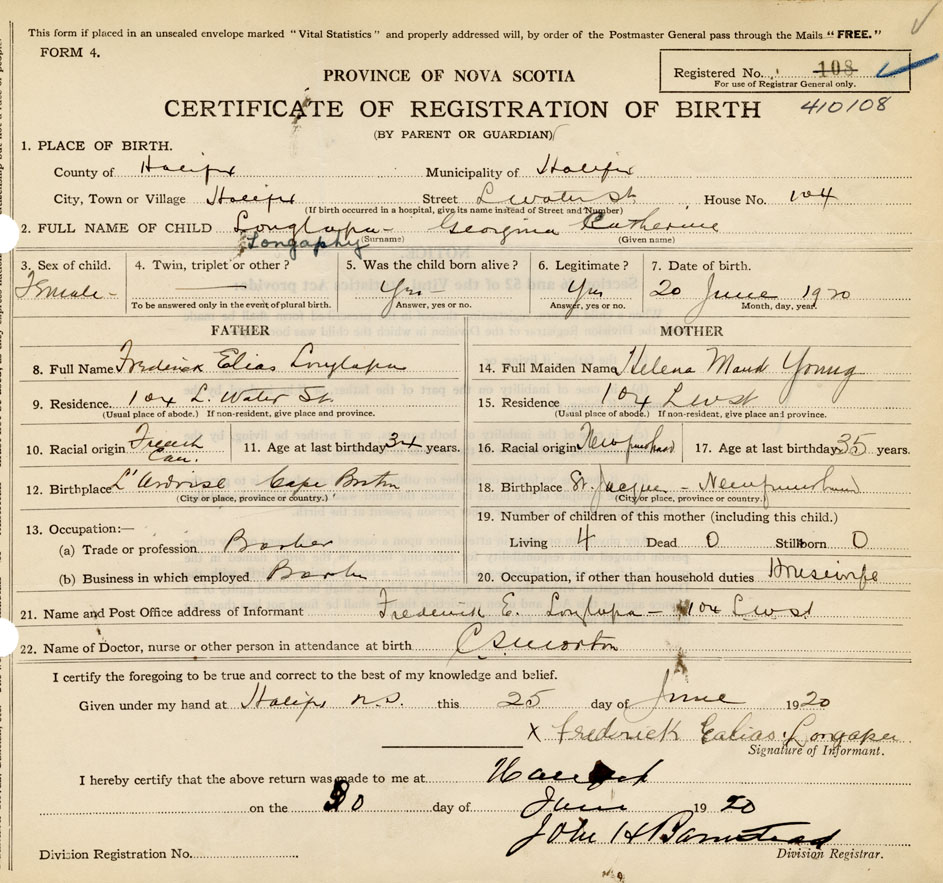 This form if placed in an unsealed envelope marked "Vital Statistics" and properly addressed will, by order of the Postmaster General pass through the Mails "FREE."
FORM 4.
Registered No. 108
For use of Registrar General only.
410108
PROVINCE OF NOVA SCOTIA
CERTIFICATE OF REGISTRATION OF BIRTH
(BY PARENT OR GUARDIAN)
1. PLACE OF BIRTH.
County of Halifax Municipality of Halifax
City, Town or Village Halifax Street L water St House No. 104
(If birth occurred in a hospital, give its name instead of Street and Number)
2. FULL NAME OF CHILD Longlapa- Georgina Catherine
Longaphy (Surname) (Given name)
3. Sex of child. 4. Twin, triplet or other? 5. Was the child born alive? 6. Legitimate? 7. Date of birth.
Female- Yes- Yes 20 June 1920
To be answered only in the event of plural birth. Answer, yes or no. Answer, yes or no. Month, day, year.
FATHER MOTHER
8. Full Name Frederick Elias Longlapa 14. Full Maiden Name Helena Maud Young
9. Residence. 104 L. Water St. 15. Residence 104 L W St
(Usual place of abode.) If non-resident, give place and province. (Usual place of abode.) If non-resident, give place and province.
10. Racial origin French Can. 11. Age at last birthday 34 years. 16. Racial origin Newfoundland 17. Age at last birthday 35 years.
12. Birthplace L'Ardoise Cape Breton 18. Birthplace St. Jacques - Newfoundland
(City or place, province or country.) (City or place, province or country.)
13. Occupation:— 19. Number of children of this mother (including this child.)
(a) Trade or profession Barber Living 4 Dead 0 Stillborn 0
(b) Business in which employed Barber 20. Occupation, if other than household duties Housewife
21. Name and Post Office address of Informant Frederick E. Longlapa - 104 L W St
22. Name of Doctor, nurse or other person in attendance at birth C S Morton
I certify the foregoing to be true and correct to the best of my knowledge and belief.
Given under my hand at Halifax N.S. this 25 day of June 1920
X Frederick Ealias Longapee
Signature of Informant.
I hereby certify that the above return was made to me at
on the 30 day of June 1920
John H Barnstead
Division Registration No. Division Registrar.